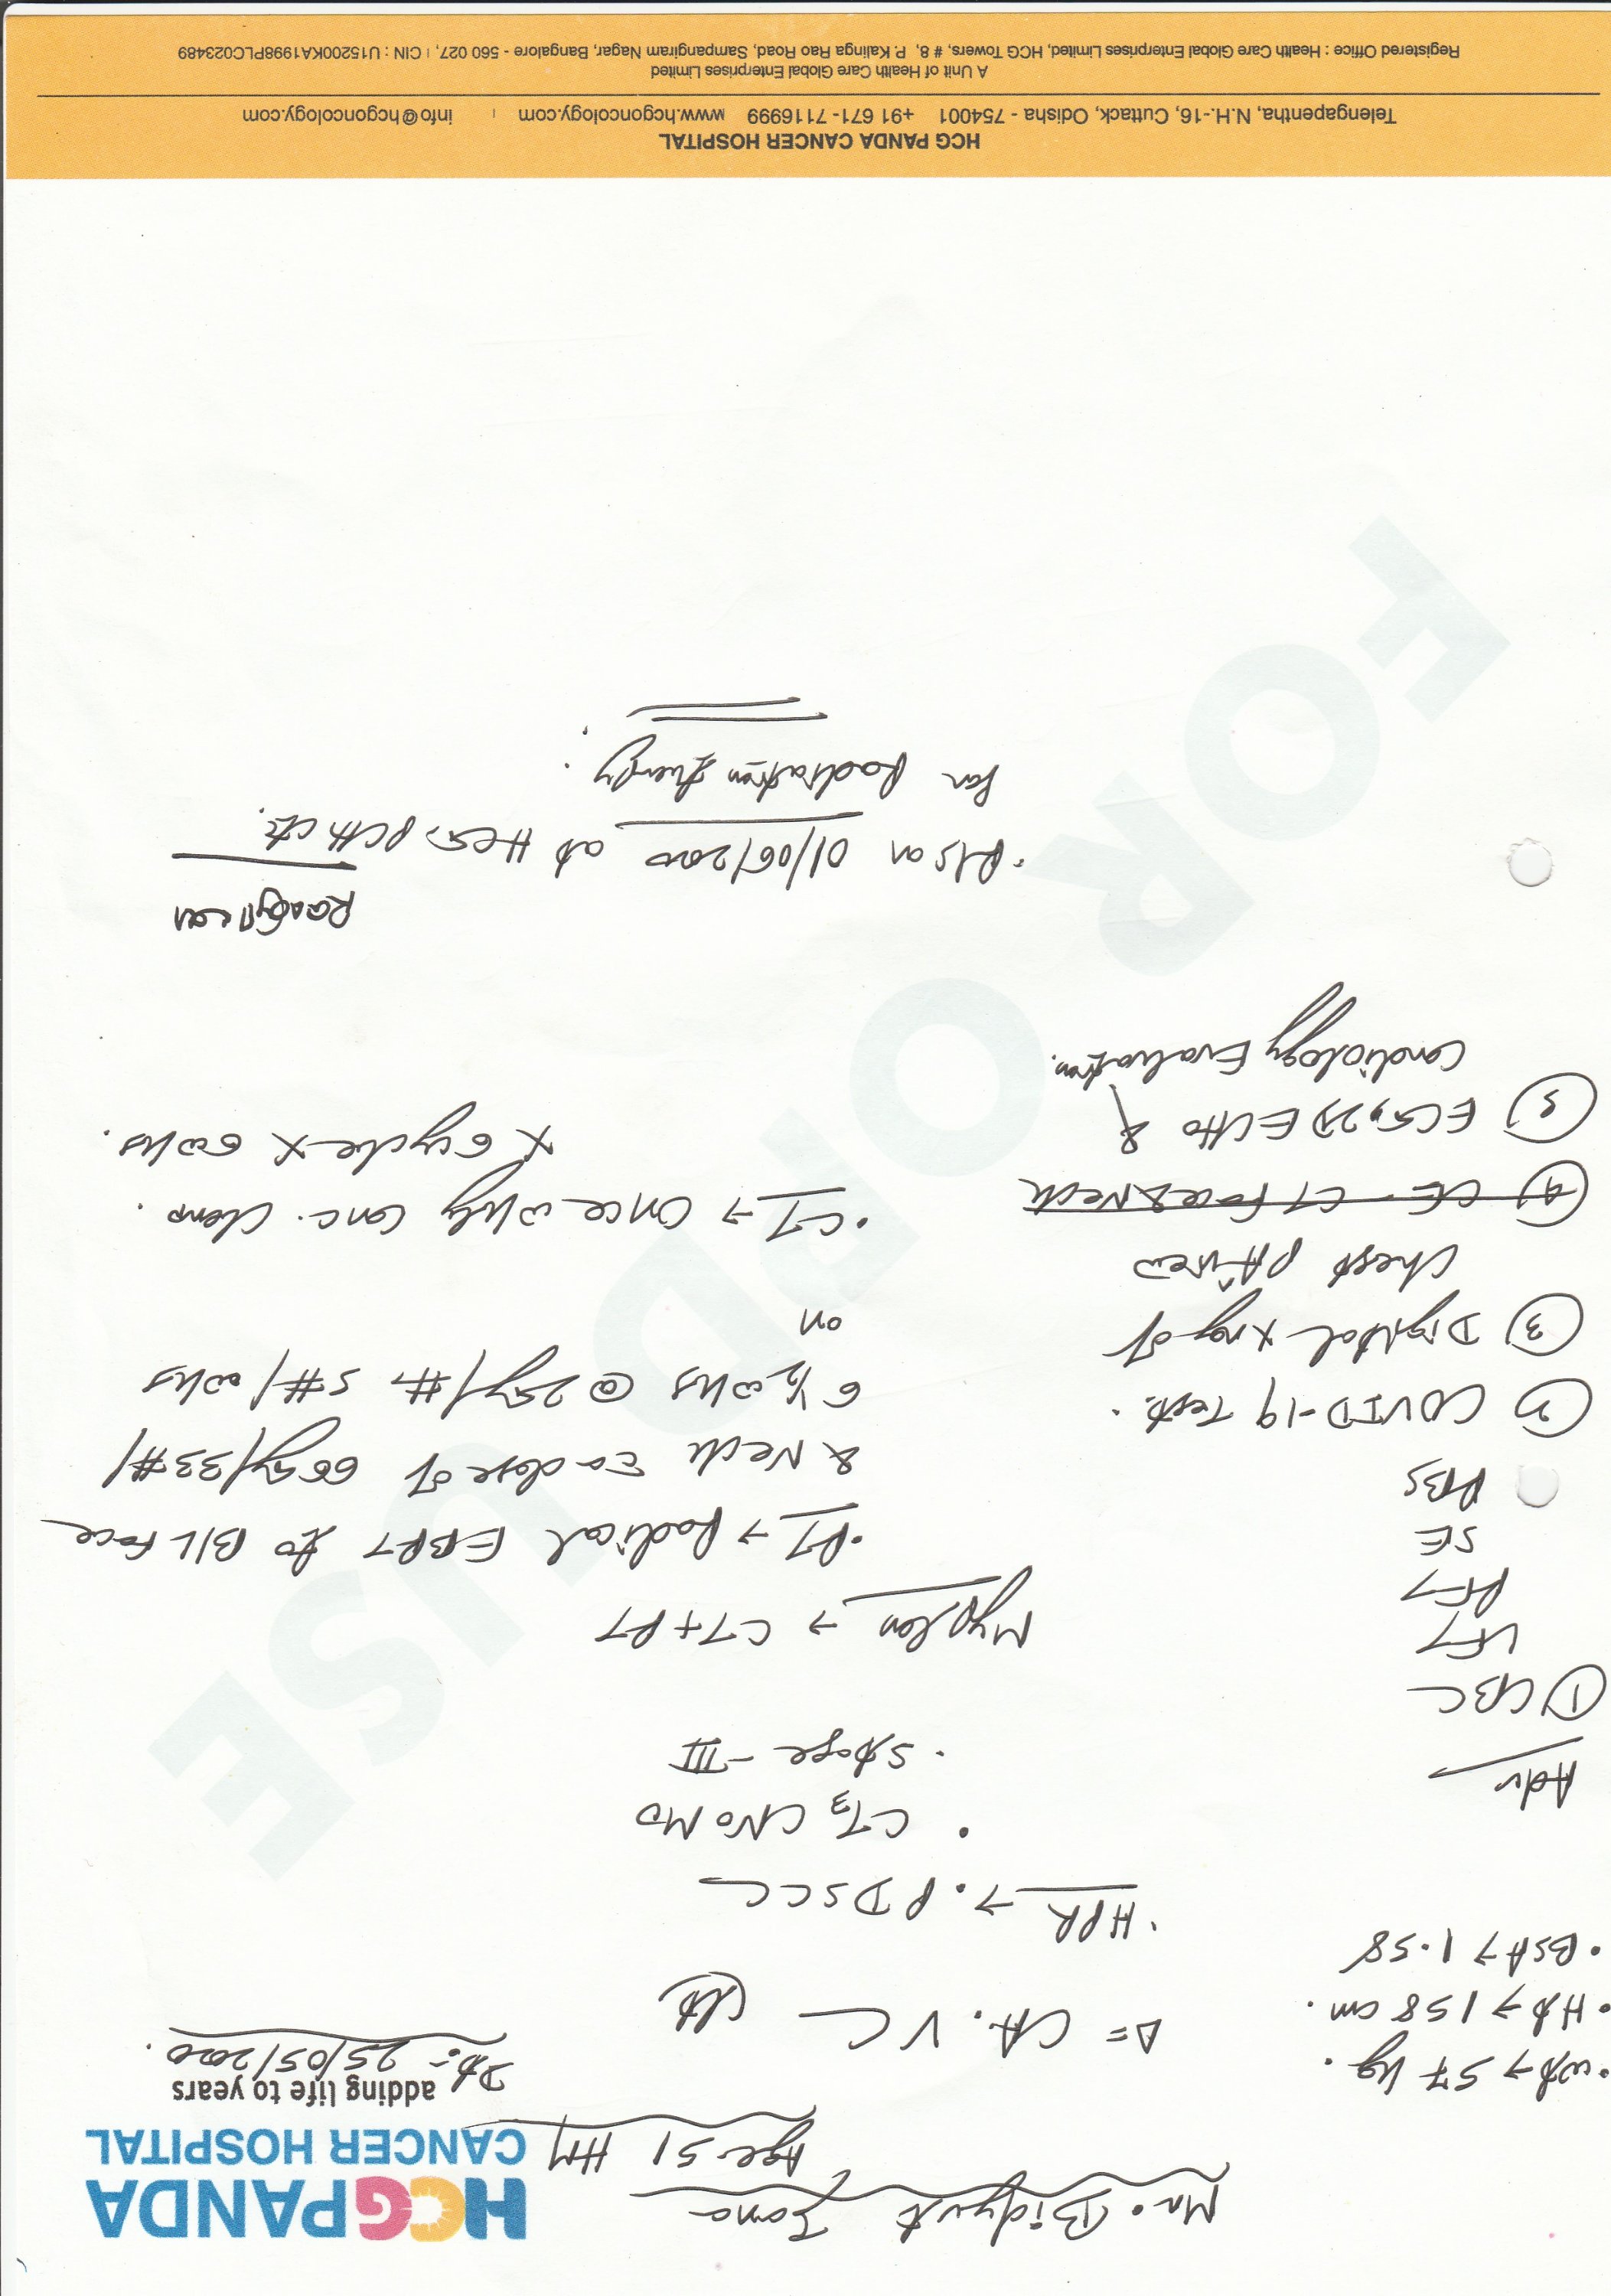 Mr. Bidyut Jana
Age-51 HM
HCGPANDA
CANCER HOSPITAL
adding life to years
Dt:- 25/05/2020.
• wt → 57 kg.
• Ht → 158 cm.
• BSA → 1.58
Δ= CA. VC (Lt)
• HPR → . PDSCC
• CT3 CN0 M0
• Stage - III
Adv
① CBC
LFT
RFT
SE
RBS
② COVID-19 Test.
③ Digital xray of
chest PA view
④ CE-CT Face & Neck
⑤ ECG, 2D ECHO &
Cardiology Evaluation.
My Plan → CT + RT
• RT → Radical EBRT to B/L Face
& Neck to a dose of 66Gy/33#/
6½ wks @ 2Gy/#, 5#/wks
on
• CT → Once wkly conc. chemo.
x 6 cycle x 6 wks.
• R/S on 01/06/2020 at HCG, PCH CTC.
for Radiation therapy.
FOR OPD USE
HCG PANDA CANCER HOSPITAL
Telengapentha, N.H.-16, Cuttack, Odisha - 754001 +91 671- 7116999 www.hcgoncology.com | info@hcgoncology.com
A Unit of Health Care Global Enterprises Limited
Registered Office : Health Care Global Enterprises Limited, HCG Towers, # 8, P. Kalinga Rao Road, Sampangiram Nagar, Bangalore - 560 027, | CIN : U15200KA1998PLC023489